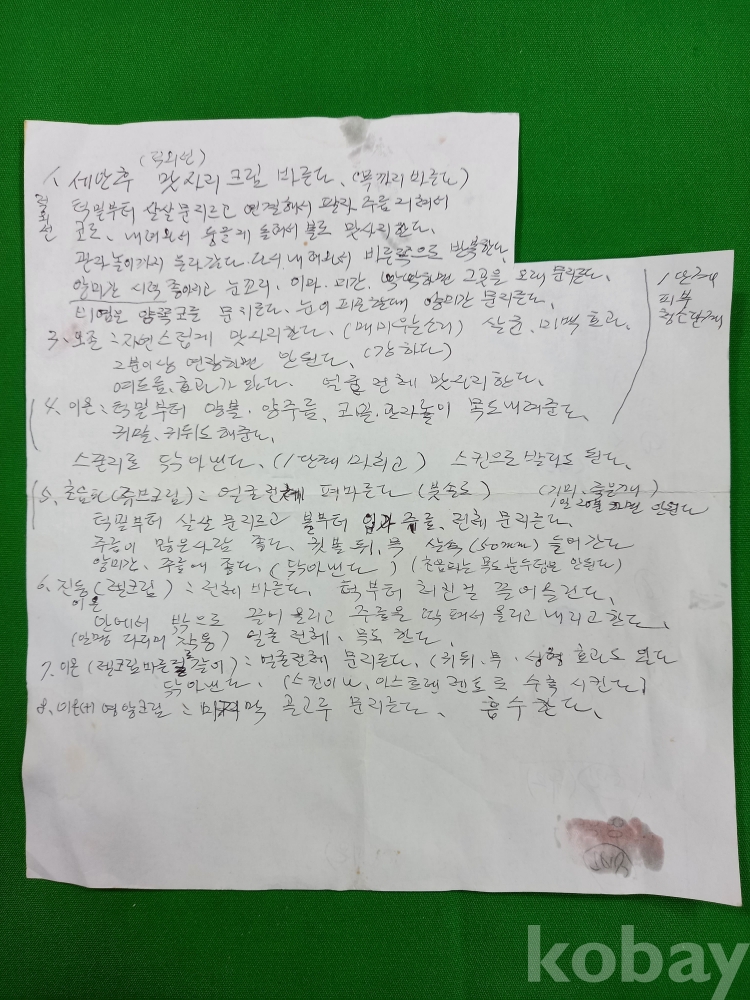 (적외선)
1. 세안후 맛사리크림 바른다. (목까지 바른다)
적외선
턱밑부터 살살문리르고 연결해서 팔자 주름
코로, 내려와서 둥글게 돌려서 볼도 맛사리한다.
관자놀이까지 올라간다. 다시 내려와서 바른쪽으로 반복한다.
양미간 시력 좋아리고 눈꼬리. 이마. 미간. 딱딱하면 그곳을 오래 문리른다.
비염은 양쪽코를 문리른다. 눈이 피곤할때 양미간 문리른다.
1단계
피부
청소단계
3. 오존 : 자연스럽게 맛사리한다. (매미우는소리) 살균. 미백 효과.
2분이상 연장하면 안된다. (강하다)
여드름, 효과가 있다. 얼굴 전체 맛사리한다.
4. 이온 : 턱밑부터 양볼. 양주름. 코끝. 관자놀이 목도내려준다.
귀밑. 귀뒤도해준다.
스폰리로 닦아낸다. (1단계 마치고) 스킨으로 발라도 된다.
5. 초음파 (튜브크림) : 얼굴전체 펴바른다 (붓솔로) (기미. 죽은깨)
1일 20분 넘으면 안된다
턱밑부터 살살 문리르고 볼부터 입가 주름. 전체 문리른다.
주름이 많은사람 좋다. 귓볼 뒤. 목 살속 (50mm) 들어간다
양미간. 주름에 좋다. (닦아낸다) (초음파는 목도 눈두덩은 안된다)
6. 진동 (겔크림) : 전체 바른다. 턱부터 끌어올린다.
이온
안에서 밖으로 끌어 올리고 주름을 올리고 내리고한다.
(일명 다리미 작동) 얼굴 전체. 목도 한다.
7. 이온 (겔크림바른 같이) : 얼굴전체 문리른다. (귀뒤. 목. 성형 효과도 있다
닦아낸다. (스킨이나. 아스트렌젠트로 수축 시킨다)
8. 이온(+) 영양크림 : 마지막 골고루 문리른다. 흡수한다.
kobay